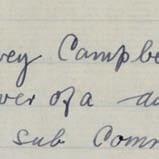 vey Campbe
wer of a
sub Comm